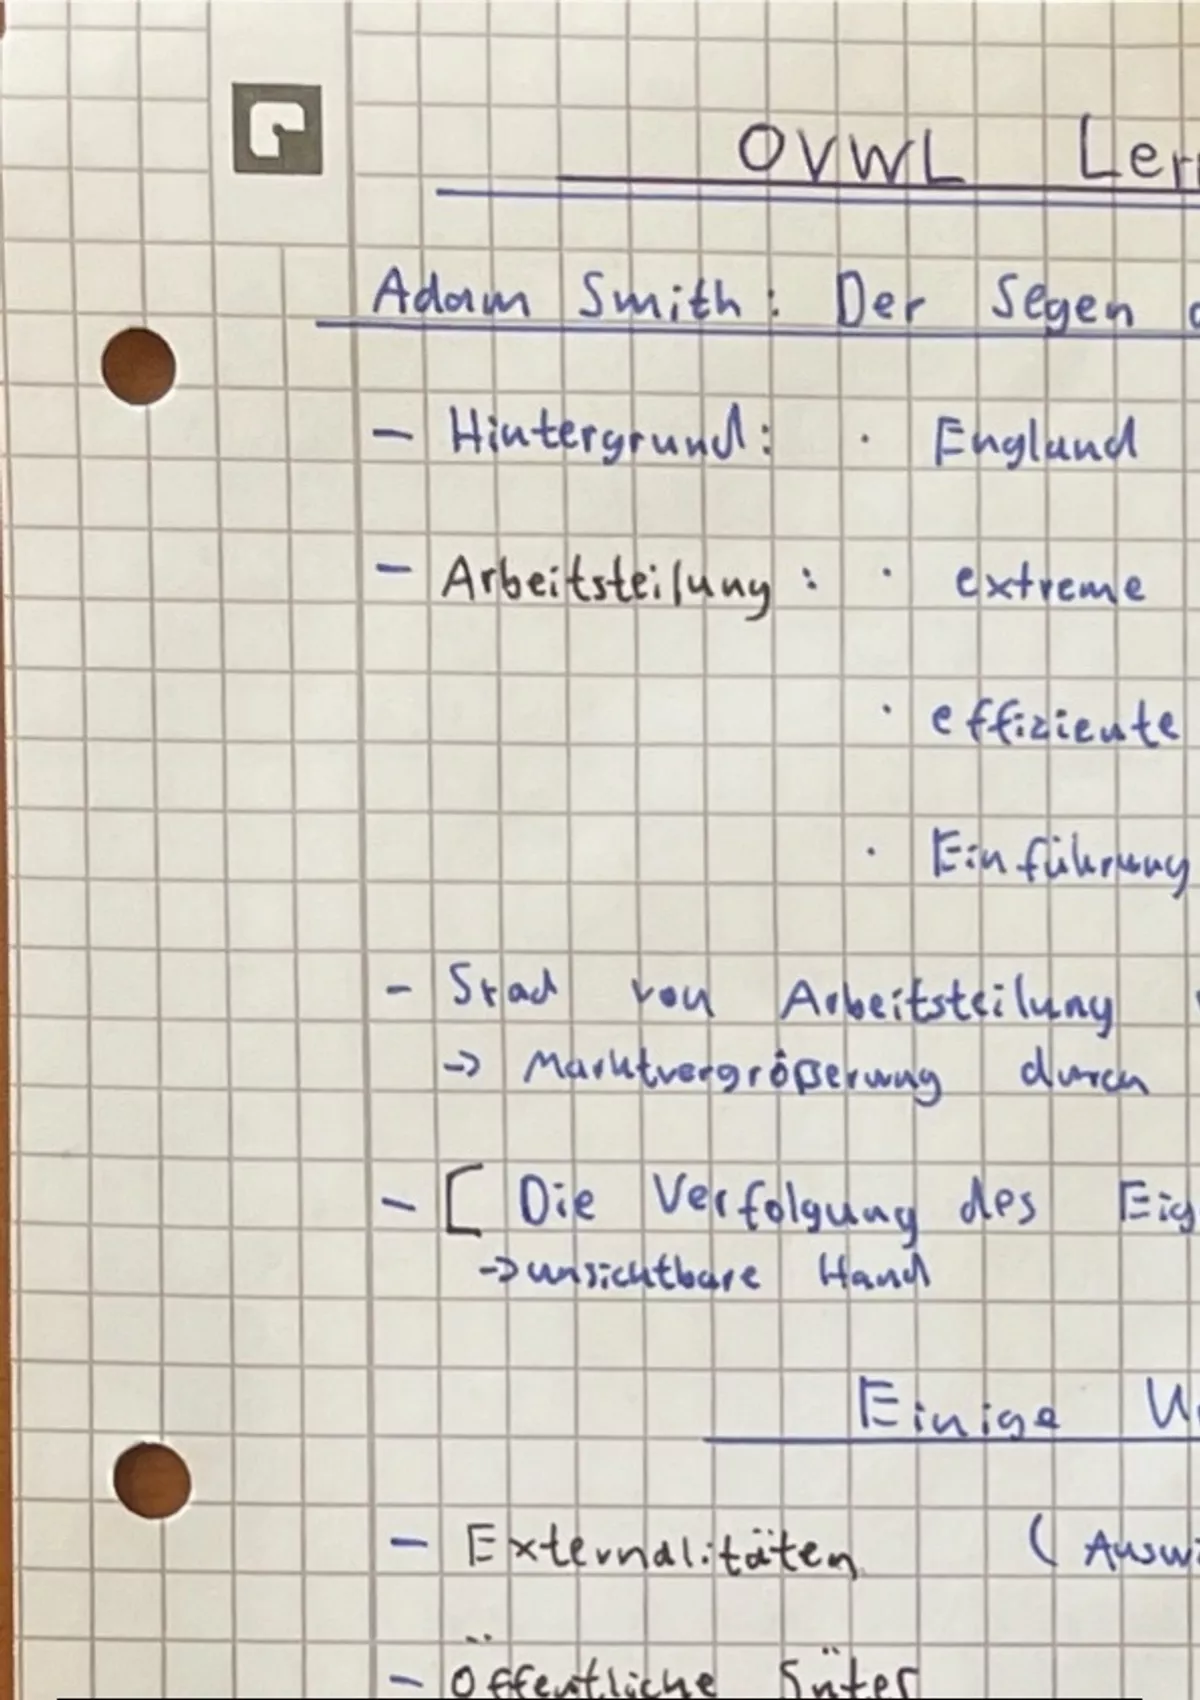 OVWL Ler
Adam Smith: Der Segen d
- Hintergrund: · England
- Arbeitsteilung: · extreme
· effiziente
· Einführung
- Grad von Arbeitsteilung
-> Marktvergrößerung durch
- [ Die Verfolgung des Eig
-> unsichtbare Hand
Einige
- Externalitäten (Auswi
- Öffentliche Güter